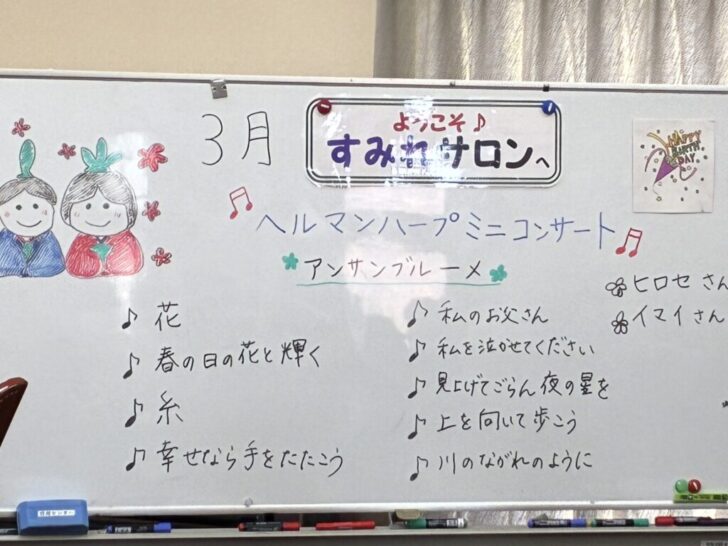 3月
ようこそ♪
すみれサロンへ
HAPPY
BIRTH
DAY
♫ヘルマンハープミニコンサート♫
アンサンブルーメ
ヒロセさん
イマイさん
♪花
♪春の日の花と輝く
♪糸
♪幸せなら手をたたこう
♪私のお父さん
♪私を泣かせてください
♪見上げてごらん夜の星を
♪上を向いて歩こう
♪川のながれのように